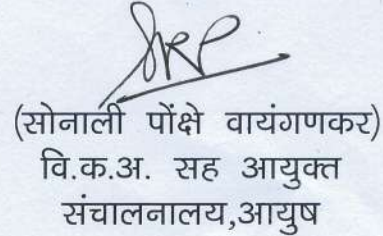 (सोनाली पोंक्षे वायंगणकर)
वि.क.अ. सह आयुक्त
संचालनालय,आयुष